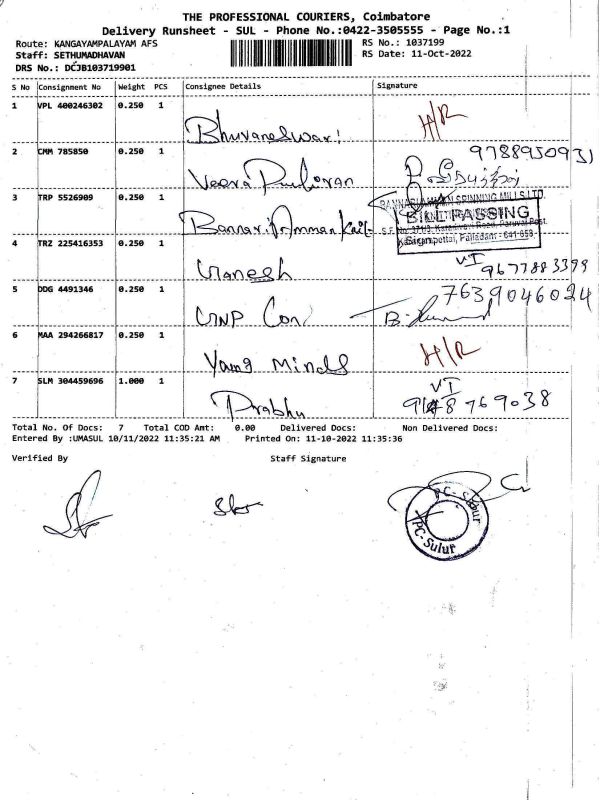 THE PROFESSIONAL COURIERS, Coimbatore
Delivery Runsheet - SUL - Phone No.:0422-3505555 - Page No.:1
Route: KANGAYAMPALAYAM AFS
RS No.: 1037199
Staff: SETHUMADHAVAN
RS Date: 11-Oct-2022
DRS No.: DCJB103719901
S No Consignment No Weight PCS Consignee Details Signature
1 VPL 400246302 0.250 1 Bhuvaneswari H/R
2 CMM 785850 0.250 1 Veera 9788950931
3 TRP 5526909 0.250 1 Bannari Amman
BANNARI AMMAN SPINNING MILLS LTD
BILL PASSING
Palladam - 641 658
4 TRZ 225416353 0.250 1 Ganesh VI 9677883399
5 DDG 4491346 0.250 1 GNP Con 7639046024
6 MAA 294266817 0.250 1 Yang Minds H/R
7 SLM 304459696 1.000 1 Prabhu VI
Total No. Of Docs: 7 Total COD Amt: 0.00 Delivered Docs: Non Delivered Docs:
Entered By :UMASUL 10/11/2022 11:35:21 AM Printed On: 11-10-2022 11:35:36
Verified By Staff Signature
PC- Sulur
PC-Sulur